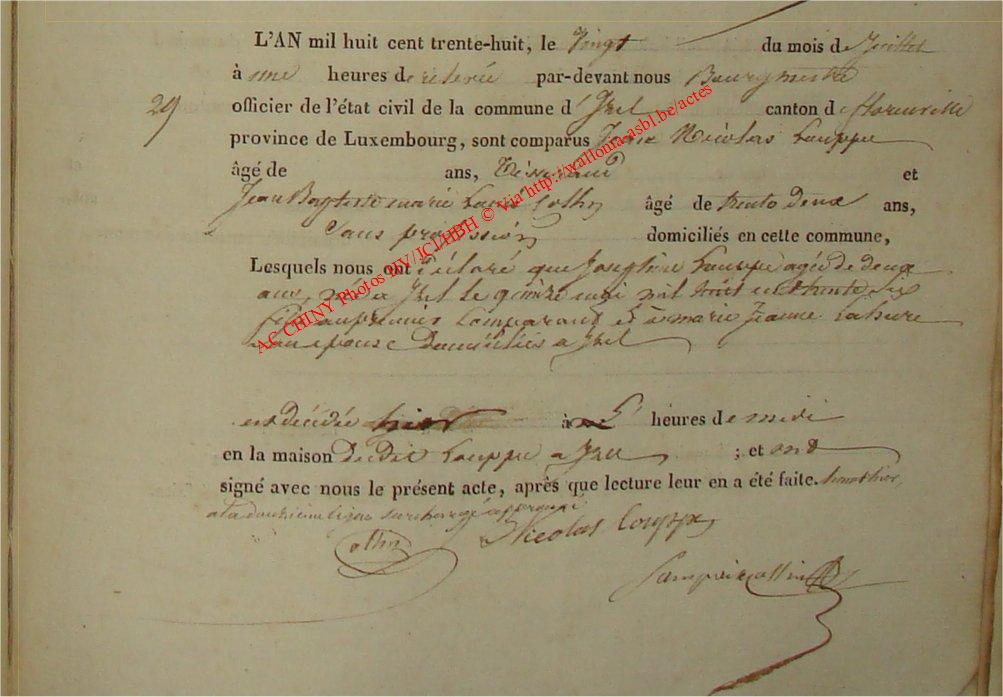 L'AN mil huit cent trente-huit, le vingt du mois de Juillet
à une heures de relevée par-devant nous Bourgmestre
29
officier de l'état civil de la commune d'Izel canton de florenville
province de Luxembourg, sont comparus Jean Nicolas Louppe
âgé de ans, Tisserand et
Jean Baptiste marie Louis Cothy âgé de trente Deux ans,
Sans profession domiciliés en cette commune,
Lesquels nous ont déclaré que Josephine Louppe agée de deux
ans, née a Izel le quinze mai mil huit cent trente six
fille du premier Comparant et de marie Jeanne Lahure
son epouse Domiciliés a Izel
est décédée hier à heures de midi
en la maison dudit Louppe a Izel ; et ont
signé avec nous le présent acte, après que lecture leur en a été faite. le mot hier,
a la douzieme ligne surchargé approuvé
Nicolas Loupp
AC CHINY Photos HV/JCL/HBH © Via http://wallonia-asbl.be/actes